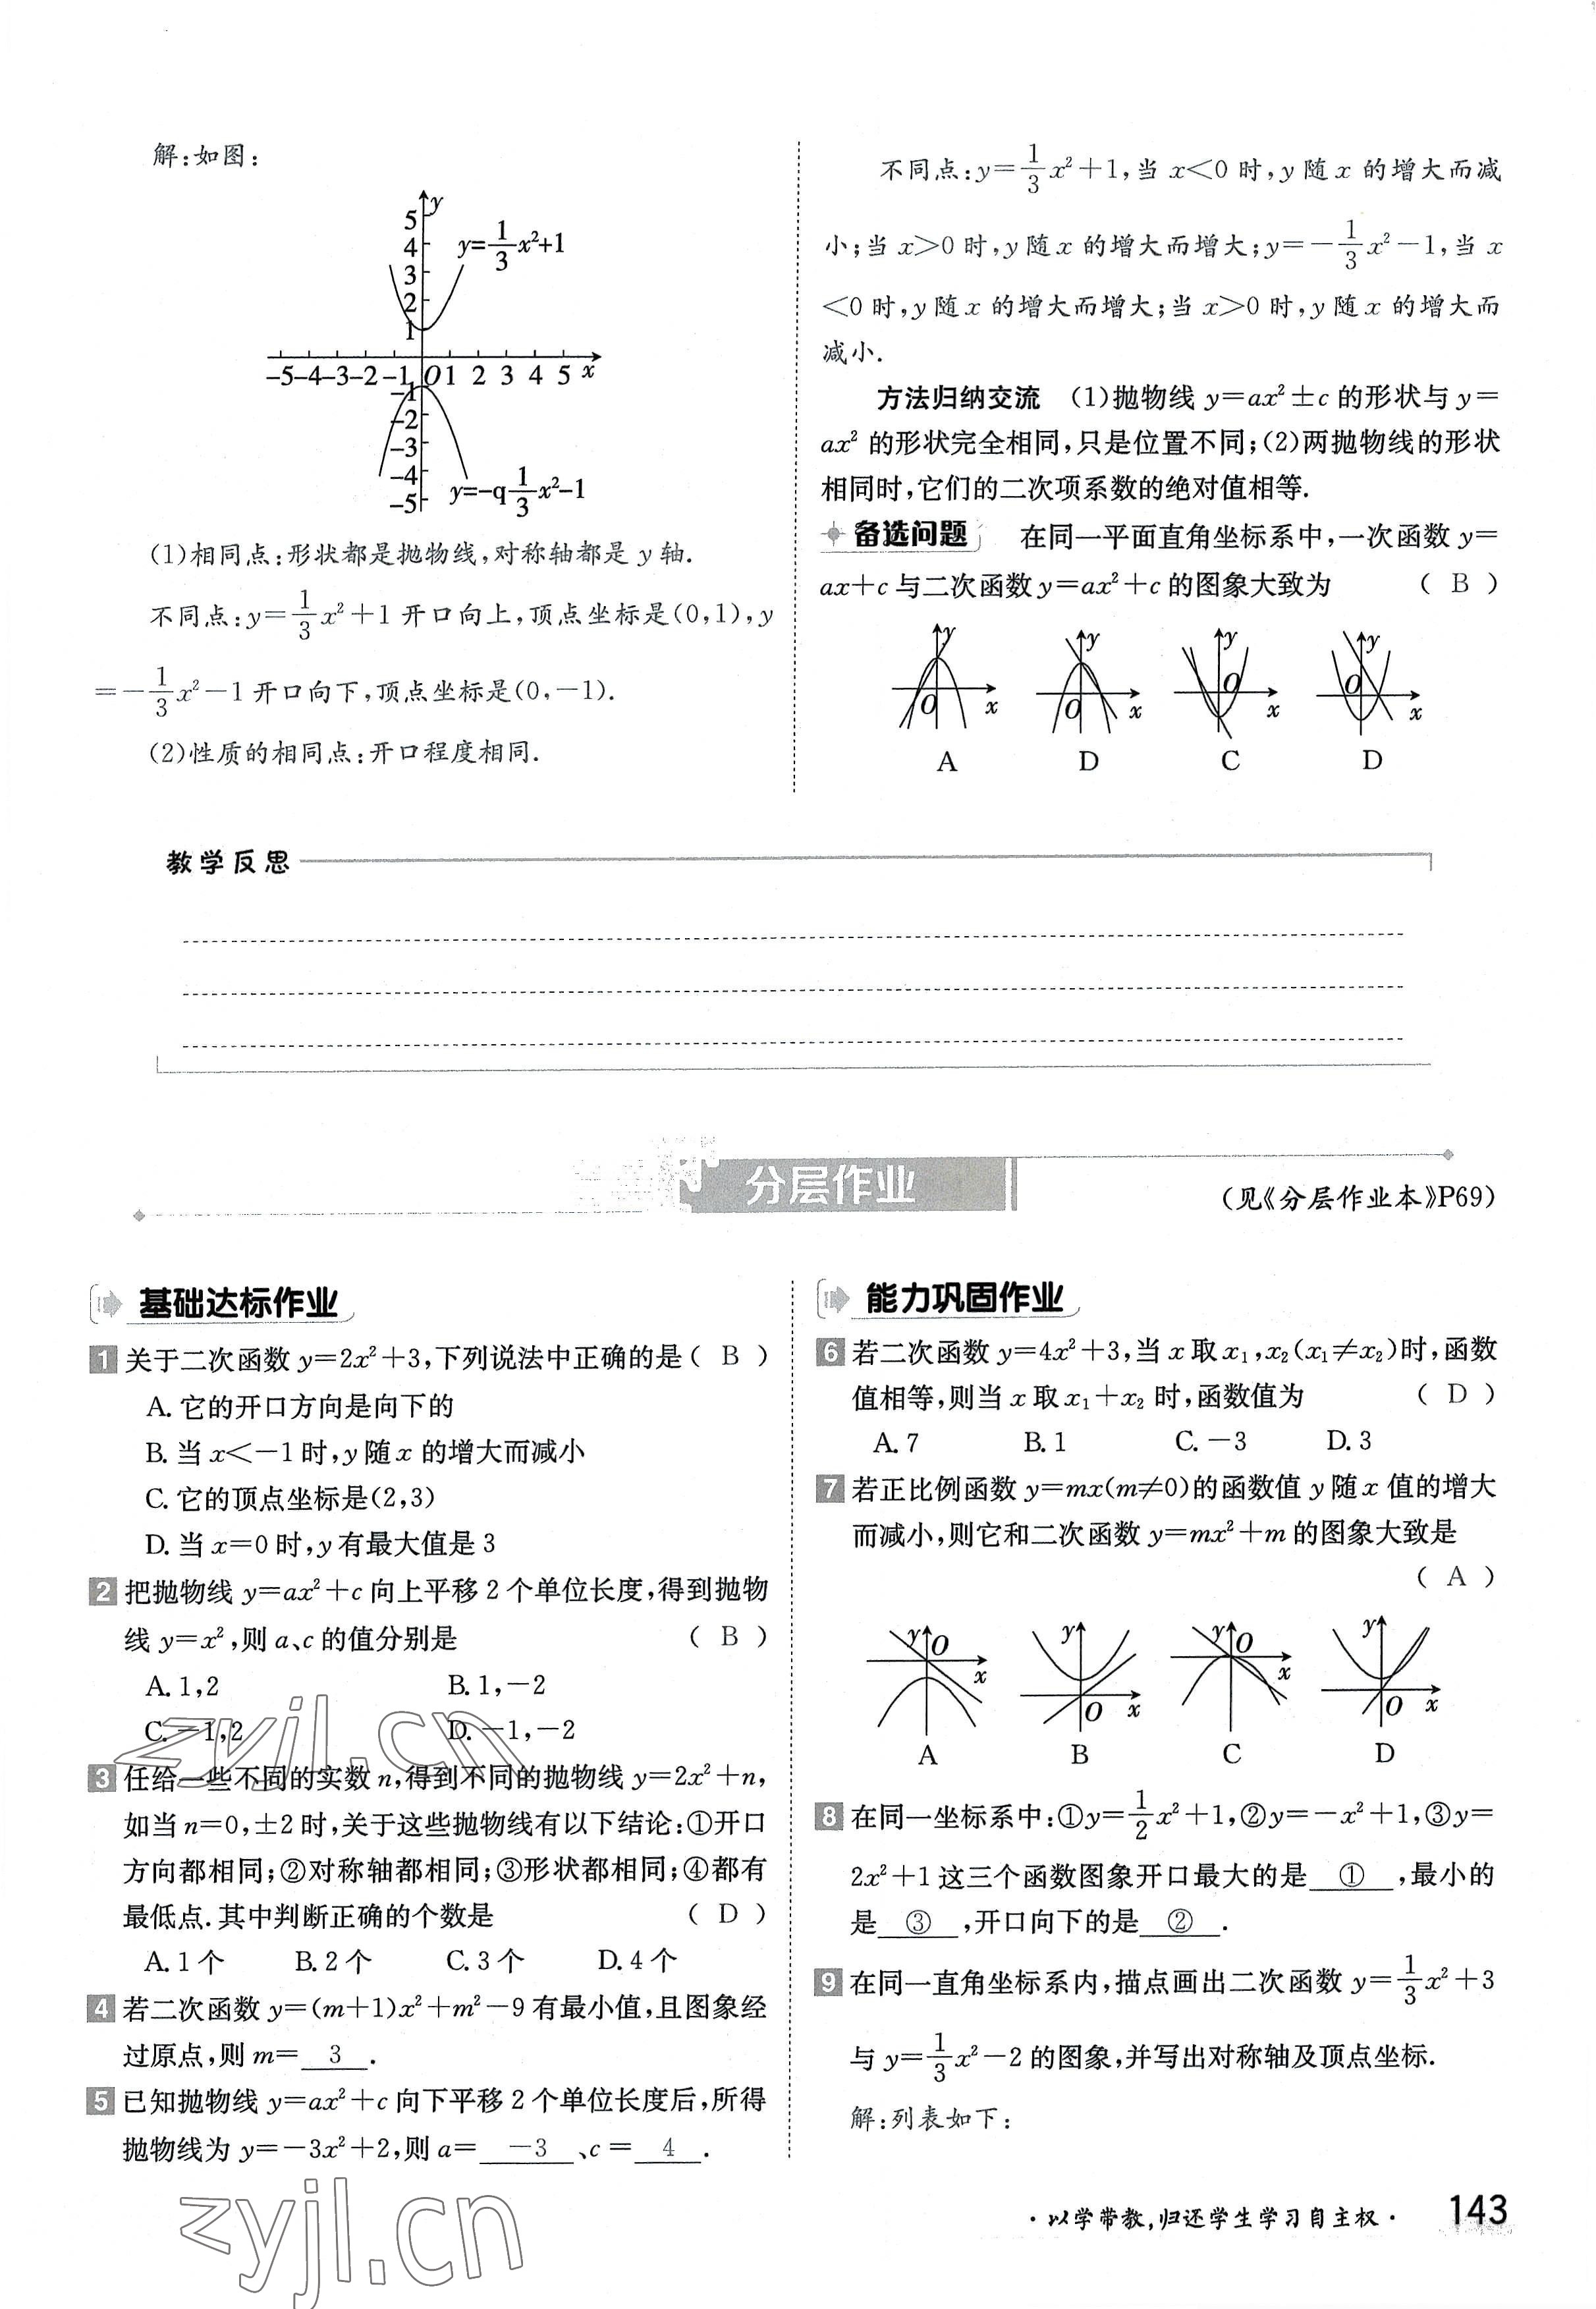 解:如图:
y
5
4
3
2
1
y=1/3x²+1
-5-4-3-2-1 O 1 2 3 4 5 x
-1
-2
-3
-4
-5
y=-q 1/3x²-1
(1)相同点:形状都是抛物线,对称轴都是 y 轴.
不同点:y=1/3x²+1 开口向上,顶点坐标是(0,1),y
=-1/3x²-1 开口向下,顶点坐标是(0,-1).
(2)性质的相同点:开口程度相同.
不同点:y=1/3x²+1,当 x<0 时,y 随 x 的增大而减
小;当 x>0 时,y 随 x 的增大而增大;y=-1/3x²-1,当 x
<0 时,y 随 x 的增大而增大;当 x>0 时,y 随 x 的增大而
减小.
方法归纳交流 (1)抛物线 y=ax²±c 的形状与 y=
ax² 的形状完全相同,只是位置不同;(2)两抛物线的形状
相同时,它们的二次项系数的绝对值相等.
备选问题 在同一平面直角坐标系中,一次函数 y=
ax+c 与二次函数 y=ax²+c 的图象大致为 ( B )
y y y y
O O O O
x x x x
A D C D
教学反思
分层作业
(见《分层作业本》P69)
基础达标作业
1 关于二次函数 y=2x²+3,下列说法中正确的是( B )
A. 它的开口方向是向下的
B. 当 x<-1 时,y 随 x 的增大而减小
C. 它的顶点坐标是(2,3)
D. 当 x=0 时,y 有最大值是 3
2 把抛物线 y=ax²+c 向上平移 2 个单位长度,得到抛物
线 y=x²,则 a、c 的值分别是 ( B )
A. 1,2 B. 1,-2
C. -1,2 D. -1,-2
3 任给一些不同的实数 n,得到不同的抛物线 y=2x²+n,
如当 n=0,±2 时,关于这些抛物线有以下结论:①开口
方向都相同;②对称轴都相同;③形状都相同;④都有
最低点.其中判断正确的个数是 ( D )
A. 1 个 B. 2 个 C. 3 个 D. 4 个
4 若二次函数 y=(m+1)x²+m²-9 有最小值,且图象经
过原点,则 m= 3 .
5 已知抛物线 y=ax²+c 向下平移 2 个单位长度后,所得
抛物线为 y=-3x²+2,则 a= -3 、c= 4 .
能力巩固作业
6 若二次函数 y=4x²+3,当 x 取 x₁,x₂(x₁≠x₂)时,函数
值相等,则当 x 取 x₁+x₂ 时,函数值为 ( D )
A. 7 B. 1 C. -3 D. 3
7 若正比例函数 y=mx(m≠0)的函数值 y 随 x 值的增大
而减小,则它和二次函数 y=mx²+m 的图象大致是
( A )
y y y y
O O O O
x x x x
A B C D
8 在同一坐标系中:①y=1/2x²+1,②y=-x²+1,③y=
2x²+1 这三个函数图象开口最大的是 ① ,最小的
是 ③ ,开口向下的是 ② .
9 在同一直角坐标系内,描点画出二次函数 y=1/3x²+3
与 y=1/3x²-2 的图象,并写出对称轴及顶点坐标.
解:列表如下:
zyjl.cn
zyjl.cn
·以学带教,归还学生学习自主权· 143